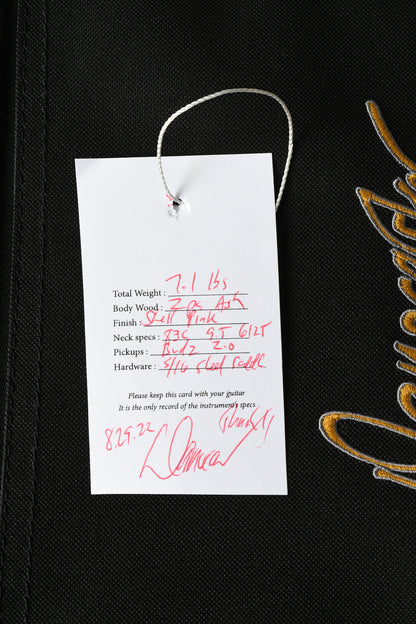 Total Weight : 7.1 lbs
Body Wood : 2 pc Ash
Finish : Shell Pink
Neck specs : 53C 9.5 6125
Pickups : Budz 2.0
Hardware : 5/16 steel saddle
Please keep this card with your guitar
It is the only record of the instrument's specs
8.29.22